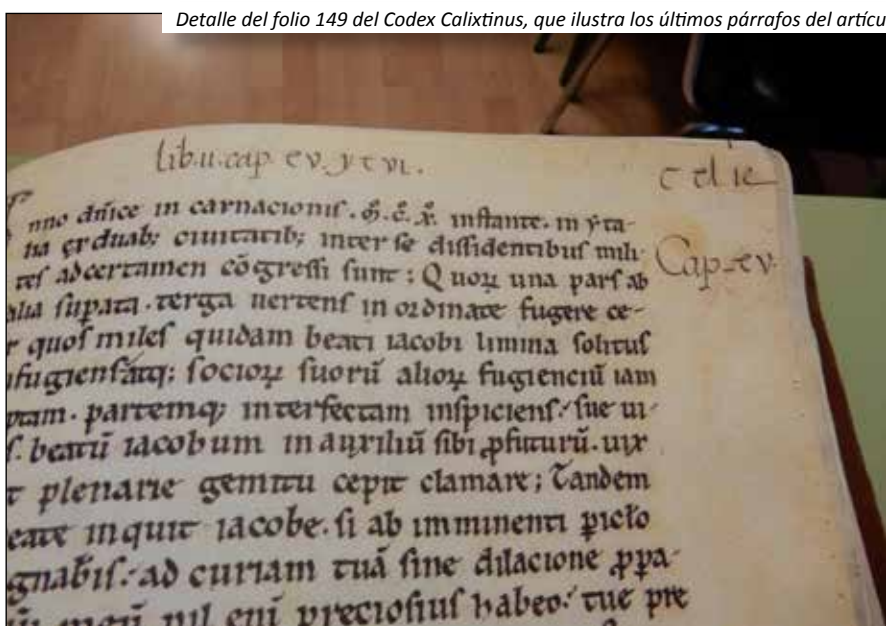 Detalle del folio 149 del Codex Calixtinus, que ilustra los últimos párrafos del artícu
lib.u.cap. cv. y c vi.
nno dn̄ice in carnacioniſ. inſtante. in yta-
duab; ciuitatib; inter ſe diſſidentibuſ mili-
teſ ad certamen cōgreſſi ſunt: Quoꝝ una parſ ab
alia ſupata. terga uertenſ in ordinate fugere ce-
quoſ mileſ quidam beati iacobi limina ſolituſ
ſocioꝝ ſuorū alioꝝ fugienciū iam
partemq; interfectam inſpicienſ. ſue ui-
beatū iacobum in auxiliū ſibi ꝓfuturū. uix
plenarie gemitu cepit clamare; Tandem
inquit iacobe. ſi ab imminenti
ad curiam tuā ſine dilacione
nil eni precioſiuſ habeo. tue pre
Cap. cv.